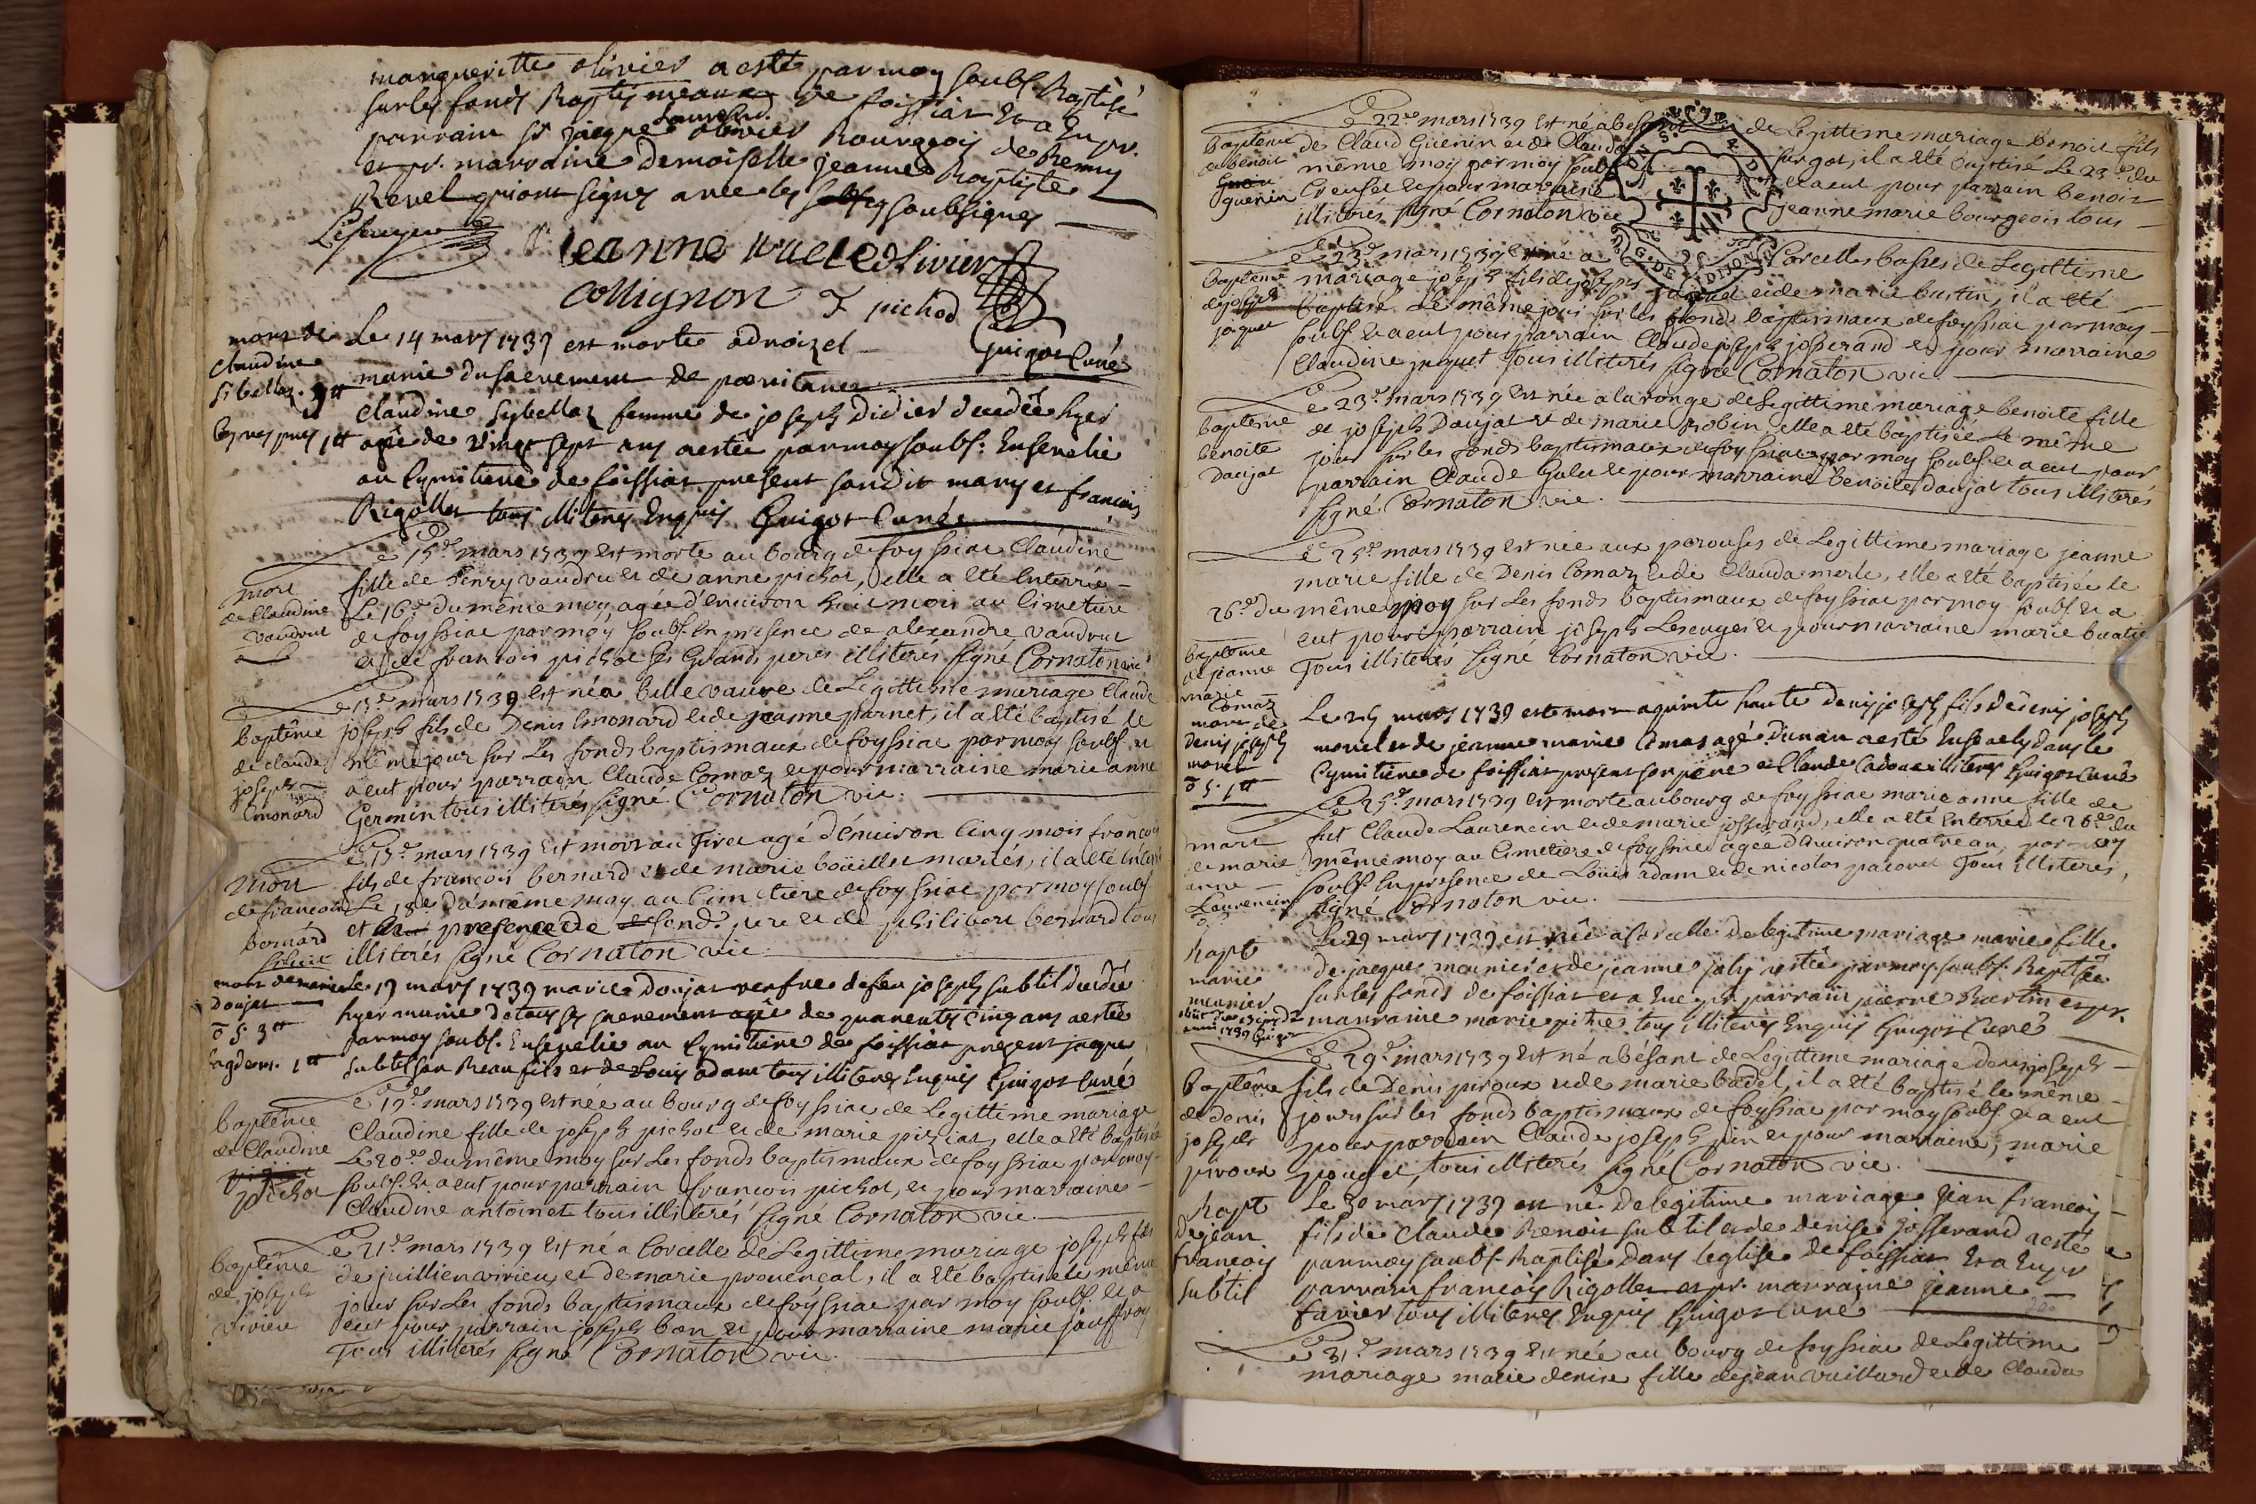 margueritte olivier a esté par moy soubs. Baptisé
sur les fonds Baptismeaux de foissiat Et a Eu pr.
parrain sr jacque Laurent olivier Bourgeois de
et pr. marraine Demoiselle jeanne Baptiste
Revel qui ont signés avec les soubsignés
jeanne revel olivier
Collignon F pichod
Guigot Curé
mort de
Claudine
sibellas
Le 14 mars 1739 est morte a
munie du sacrement de pœnitance
Claudine sybellas femme de joseph Didier decedée hyer
agée de vingt sept ans a estée par moy soubs. Ensevelie
au Cymitiere de foissiat present sondit mary et francois
Rigollet tous illiterés Enquis Guigot Curé
mort
de Claudine
vaudrut
Le 15e mars 1739 est morte au bourg de foyssiac Claudine
fille de henry vaudrut et de anne pichot, elle a été Enterrée
Le 16e du même moy agée d'environ huit mois au Cimetiere
de foyssiac par moy soubs. En presence de alexandre vaudrut
et de francois pichot ses Grands peres illiterés signé Cornaton vic
baptême
de claude
joseph
Emonard
Le 15e mars 1739 est né a bellevavre de Legittime mariage Claude
joseph fils de Denis Emonard et de jeanne parnet, il a été baptisé le
même jour sur Les fonds baptismaux de foyssiac par moy soubs. et
a eut pour parrain Claude Comaz et pour marraine marie anne
Germin tous illiterés signé Cornaton vic.
mort
de francois
bernard
Le 17e mars 1739 est mort au Tiret agé d'environ Cinq mois francois
fils de francois bernard et de marie boüillet mariés, il a été Enterré
Le 18e du même moy au Cimetiere de foyssiac par moy soubs.
et En presence de sondt pere et de philibert bernard tous
illiterés signé Cornaton vic
mort de marie
Doujat
Le 19 mars 1739 marie Doujat vefve de feu joseph subtil Decedée
hyer munie de tous ses sacrements agée de quarente Cinq ans a estée
par moy soubs. Ensevelie au Cymitiere de foissiat present jaque
subtil son Beau fils et de Louis adam tous illiterés Enquis Guigot Curé
baptême
de Claudine
pichot
Le 19e mars 1739 est née au bourg de foyssiac de Legittime mariage
Claudine fille de joseph pichot et de marie piziat, elle a été baptisée
Le 20e du même moy sur Les fonds baptismaux de foyssiac par moy
soubs. et a eut pour parrain francois pichot, et pour marraine
Claudine antoinet tous illiterés signé Cornaton vic.
baptême
de joseph
vivieu
Le 21e mars 1739 est né a Corcelle de Legittime mariage joseph fils
de juillien vivieu, et de marie provencal, il a été baptisé le même
jour sur Les fonds baptismaux de foyssiac par moy soubs. et a
eut pour parrain joseph bon et pour marraine marie jauffroy
Tous illiterés signé Cornaton vic.
baptême
de benoit
guenin
Le 22e mars 1739 est né a besant de Legittime mariage benoit fils
de Claud Guenin et de Claudа furgot, il a été baptisé Le 23e du
même moy par moy soubs et a eut pour parrain benoit
Creuset et pour marraine jeanne marie bourgeois tous
illiterés signé Cornaton vic
G. DE DIJON
baptême
de joseph
joquet
Le 23e mars 1739 est né a Corcelles basses de Legittime
mariage joseph fils de joseph et de marie bustin, il a été
baptisé Le même jour sur les fonds baptismaux de foyssiac par moy
soubs. et a eut pour parrain Claude joseph josserand et pour marraine
Claudine jaquet tous illiterés signé Cornaton vic.
baptême
benoite
Daujat
Le 23e mars 1739 est née a la ronge de Legittime mariage benoite fille
de joseph Daujat et de marie robin, elle a été baptisée Le même
jour sur les fonds baptismaux de foyssiac par moy soubs. et a eut pour
parrain Claude Gulu et pour marraine benoite Daujat tous illiterés
signé Cornaton vic.
baptême
de jeanne
marie
Comaz
Le 25e mars 1739 est née aux parouses de Legittime mariage jeanne
marie fille de Denis Comaz et de Clauda merle, elle a été baptisée le
26e du même moy sur Les fonds baptismaux de foyssiac par moy soubs. et a
eut pour parrain joseph Lescuyer et pour marraine marie buatie
Tous illiterés signé Cornaton vic.
mort de
Denis joseph
morel
Le 25 mars 1739 est mort a quinte haute denis joseph fils de denis joseph
morel et de jeanne marie Comas agé d'un an a esté Ensevely dans le
Cymitiere de foissiat present son pere et Claude Cadoux illiterés Guigot Curé
mort
de marie
anne
Laurencin
Le 25e mars 1739 est morte au bourg de foyssiac marie anne fille de
fut Claude Laurencin et de marie josserand, elle a été Enterrée le 26e du
même moy au Cimetiere de foyssiac agée d'environ quatre an, par moy
soubs. En presence de Loüis adam et de nicolas pacoret Tous illiterés,
signé Cornaton vic.
Bapt
marie
meunier
Le 29 mars 1739 est née a Corcelle de legitime mariage marie fille
de jacques meunier et de jeanne joly a estée par moy soubs. Baptisée
sur les fonds de foissiat et a Eu pr. parrain pierre Burtin et pr.
marraine marie pitre tous illiterés Enquis Guigot Curé
baptême
de denis
joseph
piroux
Le 29e mars 1739 est né a bésant de Legittime mariage denis joseph
fils de Denis piroux et de marie badel, il a été baptisé le même
jour sur les fonds baptismaux de foyssiac par moy soubs. et a eut
pour parrain Claude joseph pin et pour marraine, marie
pouget, tous illiterés signé Cornaton vic.
Bapt
De jean
francois
subtil
Le 30 mars 1739 est né De legitime mariage jean francois
fils de Claude Benoit subtil et de denise josserand a esté
par moy soubs. Baptisé dans l'eglise de foissiat Et a Eu pr
parrain francois Rigollet et pr. marraine jeanne
favier tous illiterés Enquis Guigot Curé
Le 31e mars 1739 est née au bourg de foyssiac de Legittime
mariage marie denise fille de jean vuillard et de Clauda